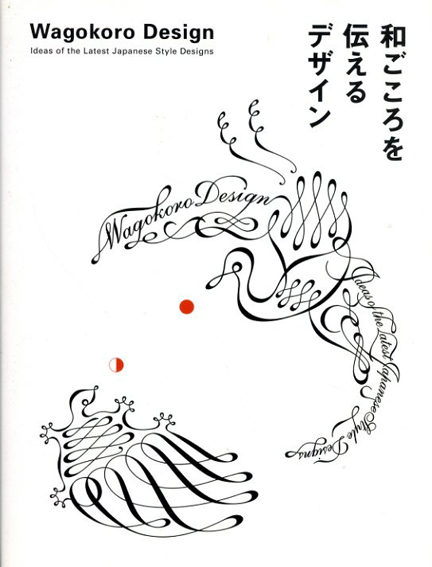 Wagokoro Design
Ideas of the Latest Japanese Style Designs
和ごころを
伝える
デザイン
Wagokoro Design
Ideas of the Latest Japanese Style Designs